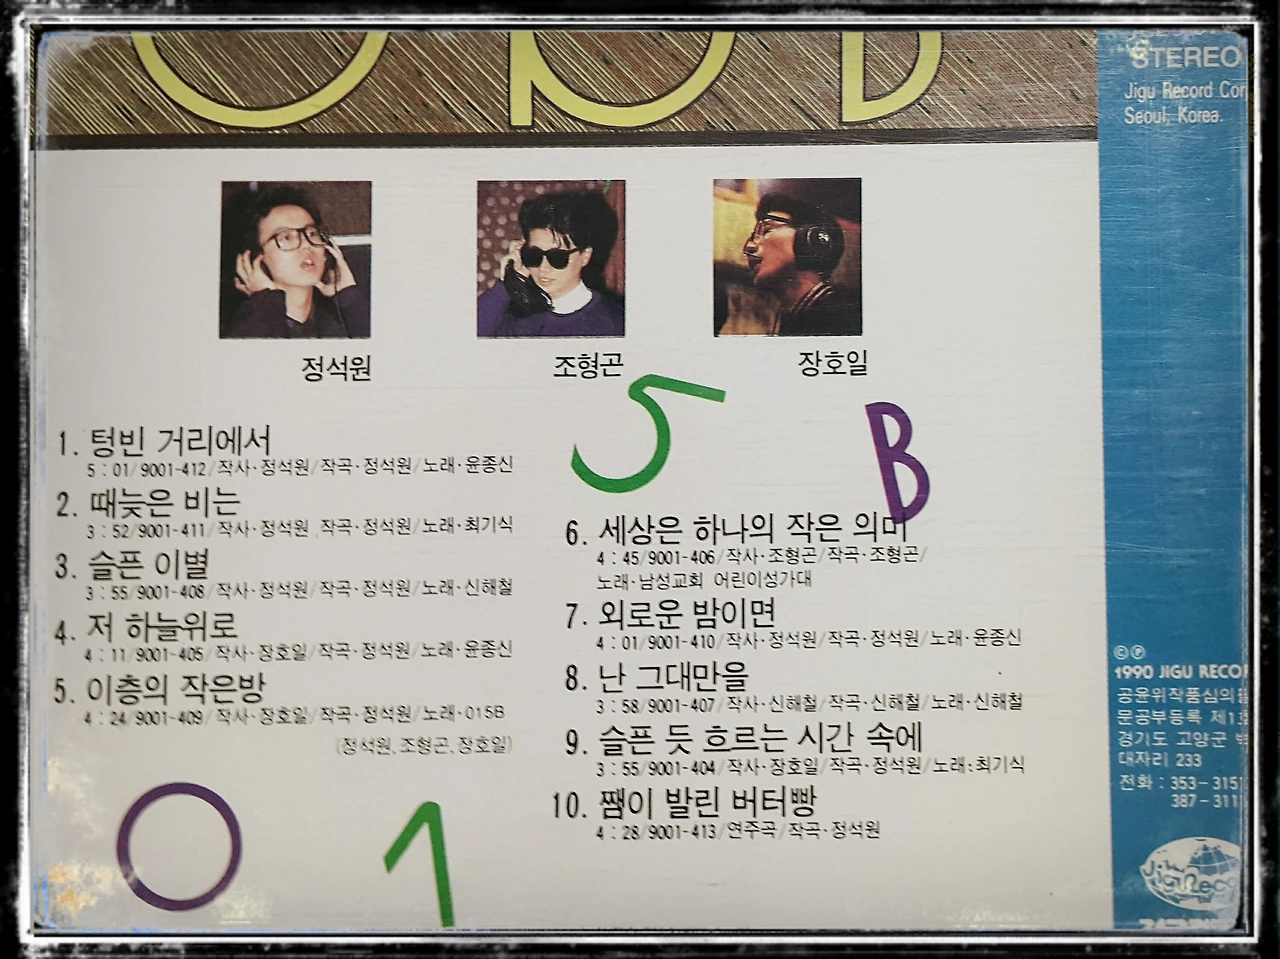 STEREO
Jigu Record
Seoul, Korea.
정석원
조형곤
장호일
1. 텅빈 거리에서
5 : 01/9001-412/작사·정석원/작곡·정석원/노래·윤종신
2. 때늦은 비는
3 : 52/9001-411/작사·정석원 작곡·정석원/노래·최기식
3. 슬픈 이별
3 : 55/9001-408/작사·정석원/작곡·정석원/노래·신해철
4. 저 하늘위로
4 : 11/9001-405/작사·장호일/작곡·정석원/노래·윤종신
5. 이층의 작은방
4 : 24/9001-409/작사·장호일/작곡·정석원/노래·015B
(정석원, 조형곤, 장호일)
5
B
6. 세상은 하나의 작은 의미
4 : 45/9001-406/작사·조형곤/작곡·조형곤/
노래·남성교회 어린이성가대
7. 외로운 밤이면
4 : 01/9001-410/작사·정석원/작곡·정석원/노래·윤종신
8. 난 그대만을
3 : 58/9001-407/작사·신해철/작곡·신해철/노래·신해철
9. 슬픈 듯 흐르는 시간 속에
3 : 55/9001-404/작사·장호일/작곡·정석원/노래:최기식
10. 쨈이 발린 버터빵
4 : 28/9001-413/연주곡/작곡·정석원
0
1
©℗
1990 JIGU
공윤위작품심의
문공부등록
경기도 고양군
대자리 233
전화 : 353-315
387-311
Jigu